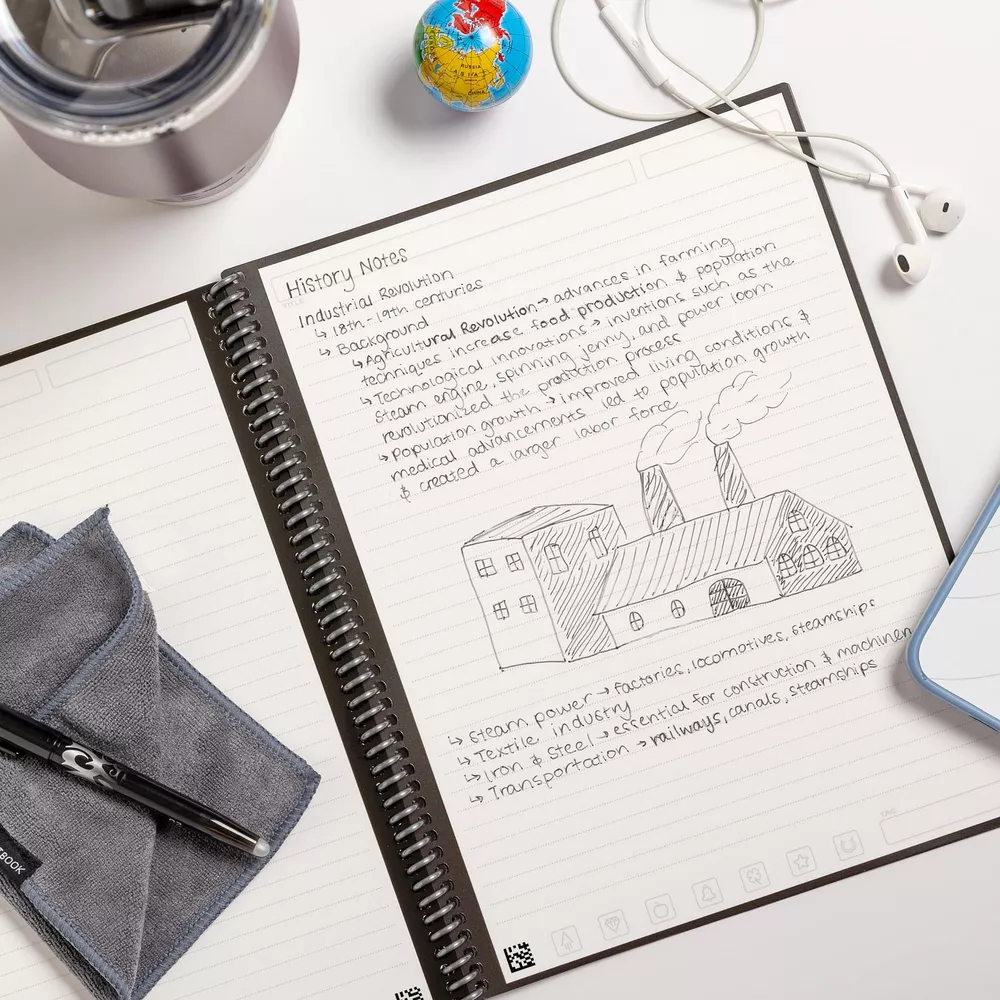 RUSSIA
ASIA
CHINA
History Notes
TITLE
Industrial Revolution
↳ 18th-19th centuries
↳ Background
↳ Agricultural Revolution → advances in farming
techniques increase food production & population
↳ Technological innovations → inventions such as the
steam engine, spinning jenny, and power loom
revolutionized the production process
↳ Population growth → improved living conditions &
medical advancements led to population growth
& created a larger labor force
↳ Steam power → factories, locomotives, steamships
↳ Textile industry
↳ Iron & Steel → essential for construction & machinery
↳ Transportation → railways, canals, steamships